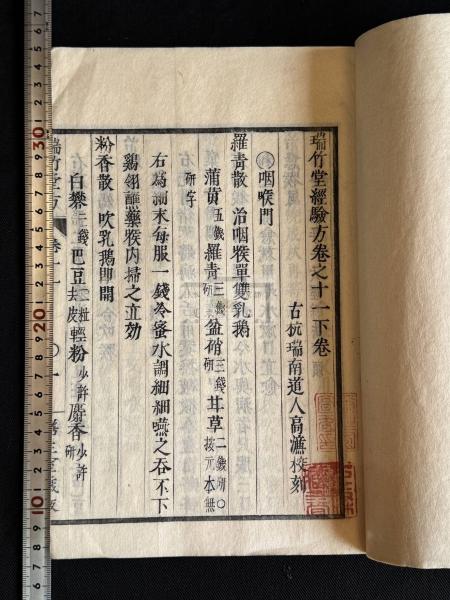 瑞竹堂經驗方卷之十一下卷
古杭瑞南道人高濂校刻
咽喉門
羅青散 治咽喉單雙乳鵝
蒲黃五錢 羅青三錢研 盆硝三錢研 甘草二錢 ○按元本無研字
右為細末每服一錢冷蜜水調細細嚥之吞不下
鷄翎蘸藥喉內掃之立効
粉香散 吹乳鵝即開
白礬二錢 巴豆二粒去皮 輕粉少許 麝香少許研
瑞竹堂方 卷十一